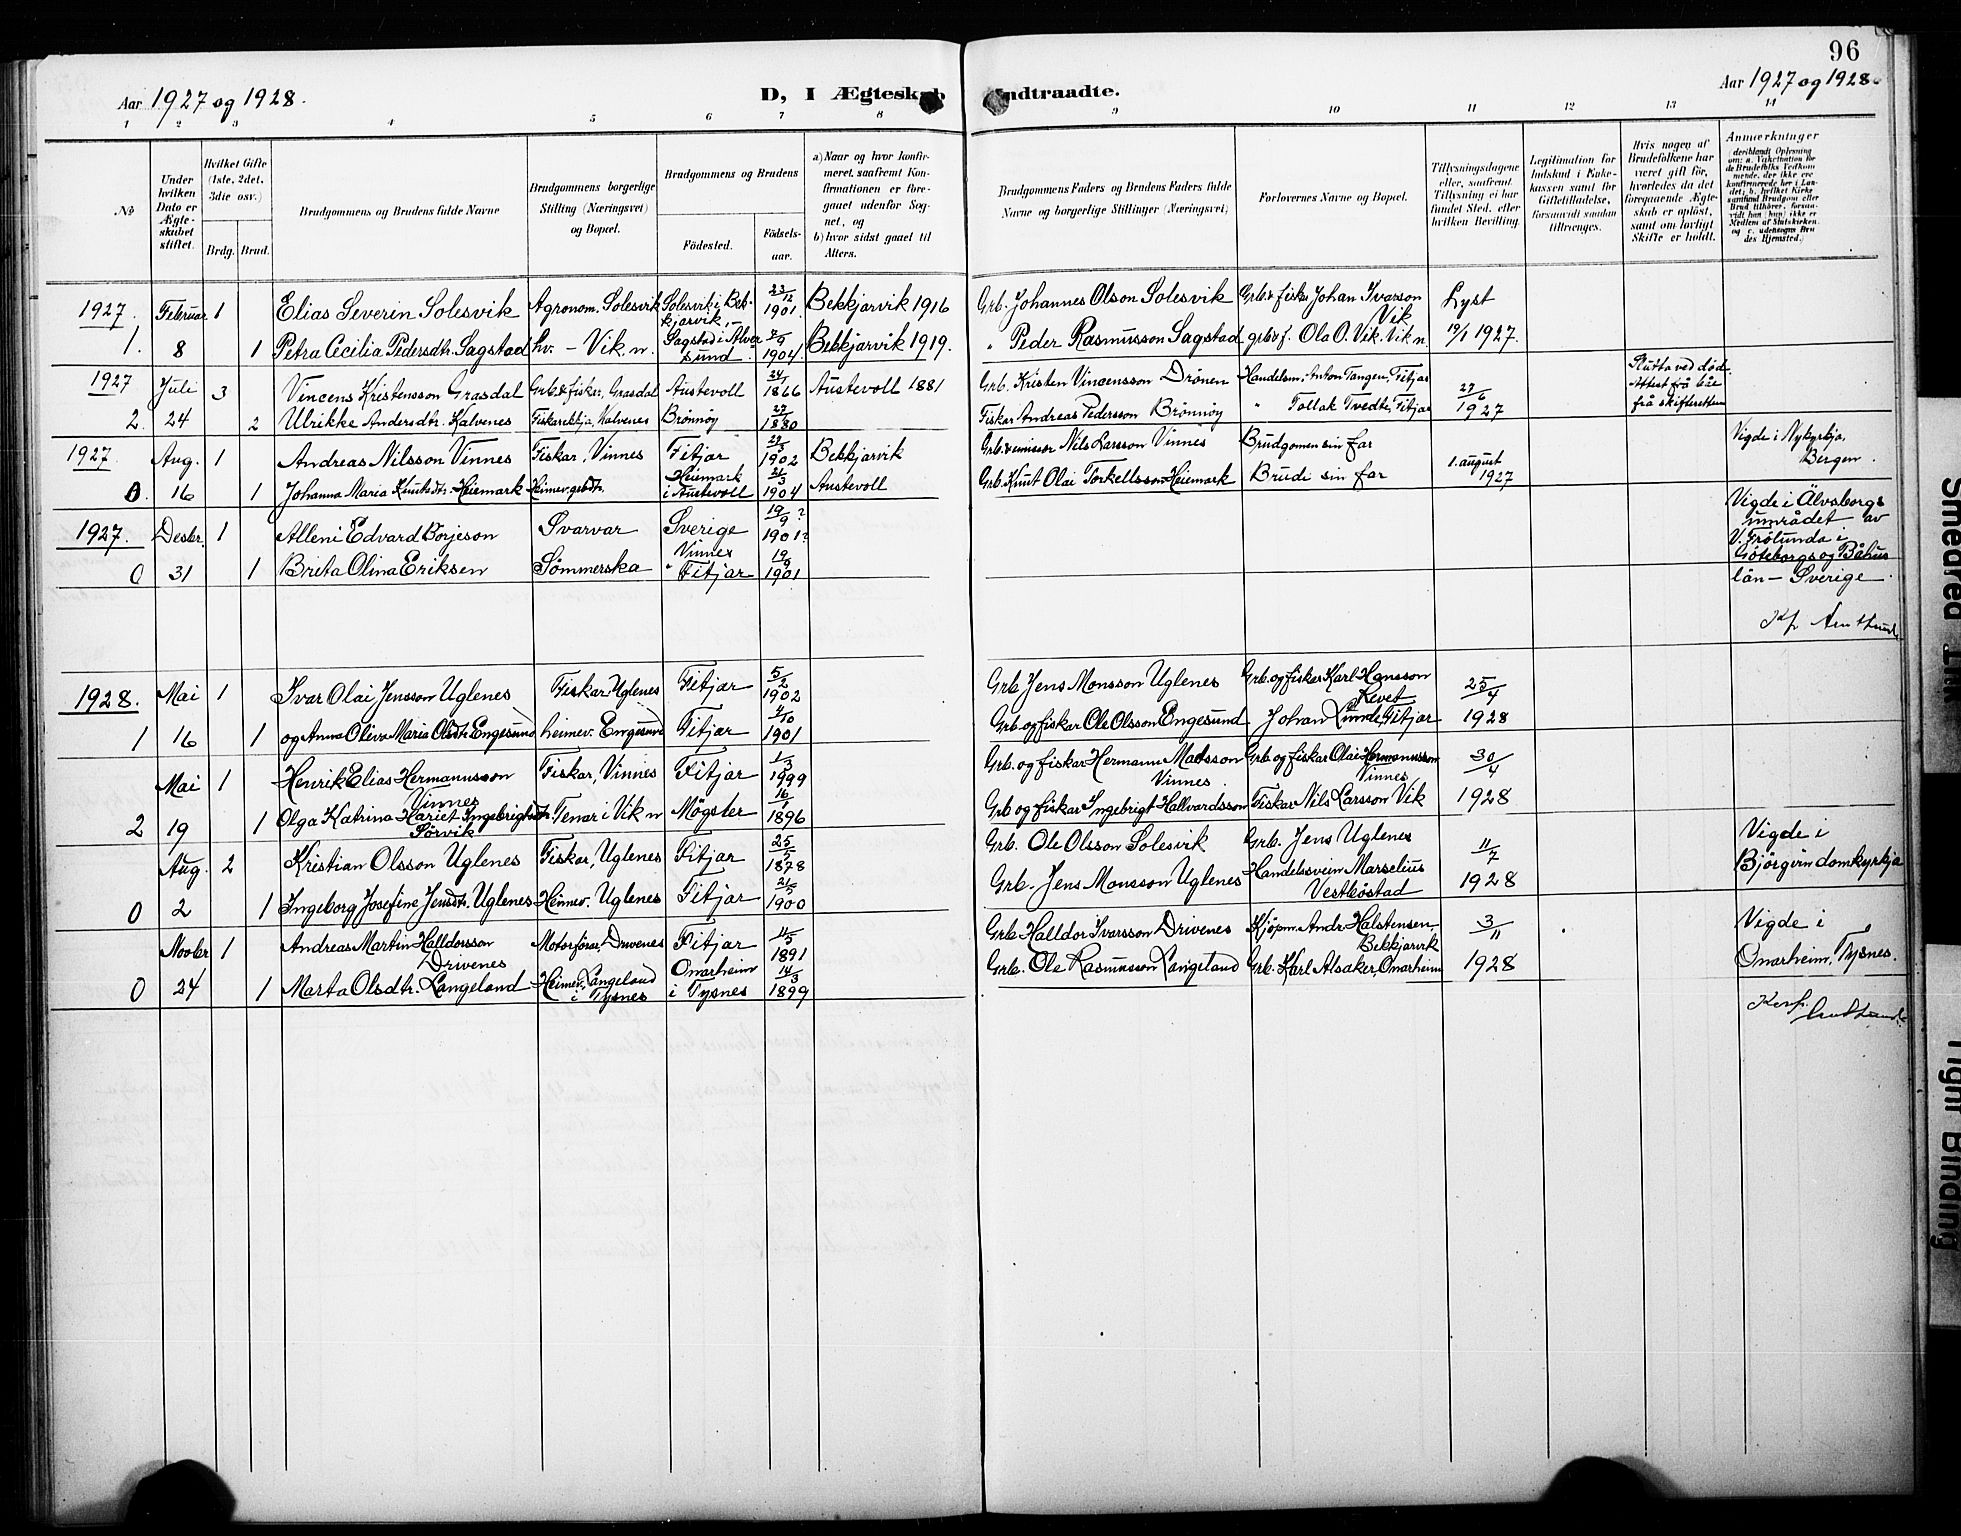 96
Aar 1927 og 1928.
D, I Ægteskab Indtraadte.
Aar 1927 og 1928.
1 2 3 4 5 6 7 8 9 10 11 12 13 14
No
Under hvilken Dato er Ægteskabet stiftet.
Hvilket Gifte (1ste, 2det, 3die osv.)
Brdg. Brud.
Brudgommens og Brudens fulde Navne
Brudgommens borgerlige Stilling (Næringsvei) og Bopæl.
Brudgommens og Brudens
Fødested.
Fødselsaar.
a) Naar og hvor konfirmeret, saafremt Konfirmationen er foregaaet udenfor Sognet, og
b) hvor sidst gaaet til Alters.
Brudgommens Faders og Brudens Faders fulde Navne og borgerlige Stillinger (Næringsvei)
Forlovernes Navne og Bopæl.
Tillysningsdagene eller, saafremt Tillysning ei har fundet Sted, efter hvilken Bevilling.
Legitimation for Indskud i Enkekassen samt for Giftetilladelse, forsaavidt saadan tiltrænges.
Hvis nogen af Brudefolkene har været gift før, hvorledes da det foregaaende Ægteskab er opløst, samt om lovligt Skifte er holdt.
Anmerkninger
1927. Februar 1 Elias Severin Solesvik Agronom. Solesvik Solesvik i Bekkjarvik 23/12 1901. Bekkjarvik 1916 Grb. Johannes Olson Solesvik Grb. & fisker Johan Ivarson Vik Lyst
1. 8 1 Petra Cecilia Pedersdtr. Sagstad hv. - Vik. n. Sagstad i Alversund 1904. Bekkjarvik 1919. " Peder Rasmusson Sagstad grb & f. Ola O. Vik. Vik n. 19/1 1927.
1927 Juli 3 Vincens Kristensson Grasdal Grb. & fisker, Grasdal Austevoll 24/1 1866 Austevoll 1881 Grb. Kristen Vincensson Drönen Handelsm. Anton Tangen, Fitjar 27/6 1927 Slutta ved död. Attest frå båe frå skifteretten
2. 24 2 Ulrikke Andersdtr. Kalvenes Fiskarekkja, Kalvenes Brönnöy 1880 Fiskar Andreas Pedersson Brönnöy " Tollak Tvedte, Fitjar
1927 Aug. 1 Andreas Nilsson Vinnes Fiskar, Vinnes Fitjar 29/3 1902 Bekkjarvik Grb. & emissær Nils Larsson Vinnes Brudgomen sin far 1. august 1927 Vigde i Nykyrkja, Bergen.
0. 16 1 Johanna Maria Knutsdtr. Heiemark Heimev. gbdtr. Heiemark i Austevoll 1904 Austevoll Grb. Knut Olai Torkellsson Heiemark Brudi sin far
1927. Desbr. 1 Alleni Edvard Börjeson Svarvar Sverige 19/9? 1901? Vigde i Älvsborgs området av V. Frölunda i Göteborgs og Båhus län - Sverige.
0 31 1 Brita Olina Eriksen Sömmerska Vinnes " Fitjar 19/9 1901
1928. Mai 1 Ivar Olai Jensson Uglenes Fiskar Uglenes Fitjar 5/2 1902 Grb. Jens Monsson Uglenes Grb. og fisker Karl Hansson 25/4 1928
1 16 1 og Anna Oliva Maria Olsdtr. Engesund heimev. Engesund Fitjar 4/10 1901 Grb. og fiskar Ole Olsson Engesund Johan Lunde, Fitjar
Mai 1 Henrik Elias Hermannsson Vinnes Fiskar, Vinnes Fitjar 1/3 1899 Grb. og fiskar Hermann Madsson Vinnes Grb. og fiskar Olai Hermannsson Vinnes 30/4 1928
2 19 1 Olga Katrina Hariet Ingebrigtsdtr. Sörvik Tenar i Vik n Mögster 16/1 1896 Grb. og fiskar Ingebrigt Hallvardsson Fiskar Nils Larsson Vik
Aug. 2 Kristian Olsson Uglenes Fiskar, Uglenes Fitjar 1878 Grb. Ole Olsson Solesvik Grb. Jens Uglenes 11/7 1928 Vigde i Björgvin domkyrkja
0 2 1 Ingeborg Josefine Jensdtr. Uglenes Heimev. Uglenes Fitjar 21/5 1900 Grb. Jens Monsson Uglenes Handelssvein Marselius Vestböstad
Novbr 1 Andreas Martin Halldorsson Drivenes Motorförar, Drivenes Fitjar 11/5 1891 Grb. Halldor Ivarsson Drivenes Kjöpm. Andr. Halstensen Bekkjarvik 3/11 1928 Vigde i Onarheim, Tysnes.
0 24 1 Marta Olsdtr. Langeland Heimev. Langeland i Tysnes Onarheim i Tysnes 14/3 1899 Grb. Ole Rasmusson Langeland Grb. Karl Alsaker, Onarheim
Tight Binding